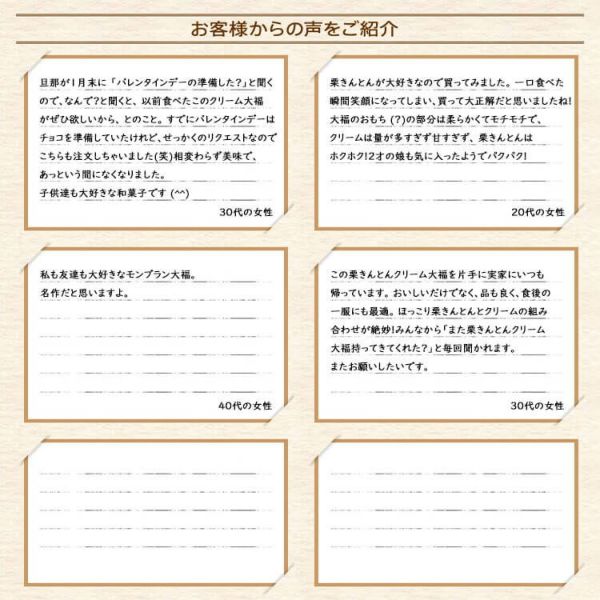 お客様からの声をご紹介
旦那が1月末に「バレンタインデーの準備した?」と聞く
ので、なんで?と聞くと、以前食べたこのクリーム大福
がぜひ欲しいから、とのこと。すでにバレンタインデーは
チョコを準備していたけれど、せっかくのリクエストなので
こちらも注文しちゃいました(笑)相変わらず美味で、
あっという間になくなりました。
子供達も大好きな和菓子です(^^)
30代の女性
栗きんとんが大好きなので買ってみました。一口食べた
瞬間笑顔になってしまい、買って大正解だと思いましたね!
大福のおもち(?)の部分は柔らかくてモチモチで、
クリームは量が多すぎず甘すぎず、栗きんとんは
ホクホク!2才の娘も気に入ったようでパクパク!
20代の女性
私も友達も大好きなモンブラン大福。
名作だと思いますよ。
40代の女性
この栗きんとんクリーム大福を片手に実家にいつも
帰っています。おいしいだけでなく、品も良く、食後の
一服にも最適。ほっこり栗きんとんとクリームの組み
合わせが絶妙!みんなから「また栗きんとんクリーム
大福持ってきてくれた?」と毎回聞かれます。
またお願いしたいです。
30代の女性